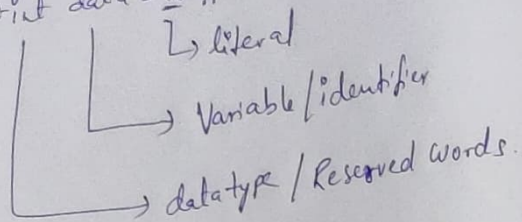 int data
↳ literal
→ Variable/identifier
→ datatype / Reserved words.